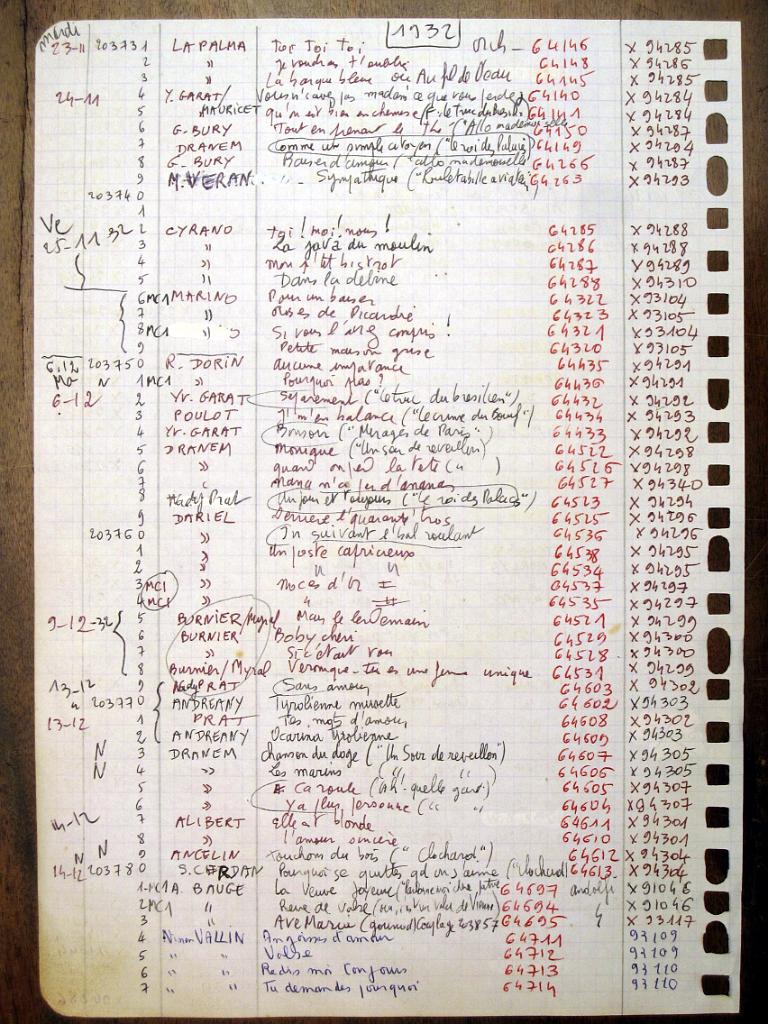 mardi 1932
23-11 203731 LA PALMA Toi Toi Toi orch - 64146 X 94285
2 " je voudrais t'oublier 64148 X 94286
3 " La barque bleue ou Au fil de l'eau 64145 X 94285
24-11 4 Y. GARAT/ Vous n'avez pas madame ce que vous perdez 64140 X 94284
5 MAURICET qu'on est bien en chemise 64141 X 94284
6 G. BURY Tout en prenant le thé ("Allo mademoiselle 64150 X 94287
7 DRANEM Comme un simple citoyen ("le roi des Palaces 64149 X 94294
8 G. BURY Baiser d'amour ("allo mademoiselle 64266 X 94287
9 M. VERAN Sympathique ("Rouletabille aviateur 64263 X 94293
203740
1
Ve 25-11-32 2 CYRANO toi! moi! nous! 64285 X 94288
3 " La java du moulin 64286 X 94288
4 " mon p'tit bistrot 64287 X 94289
5 " Dans la débine 64288 X 94310
6 MC1 MARINO Pour un baiser 64322 X 93104
7 " Roses de Picardie 64323 X 93105
8 MC1 " Si vous l'aviez compris! 64321 X 93104
9 Petite maison grise 64320 X 93105
6.12 203750 R. DORIN aucune importance 64435 X 94291
Ma N 1 MC1 " Pourquoi pas? 64436 X 94291
6-12 2 YV. GARAT Séparément ("le truc du brésilien") 64432 X 94292
3 POULOT J'm'en balance ("Le crime du Bouif") 64434 X 94293
4 YV. GARAT Bonsoir ("Mirages de Paris") 64433 X 94292
5 DRANEM Monique ("Un soir de reveillon) 64522 X 94298
6 " quand on perd la tête (" ) 64526 X 94298
7 " 64527 X 94340
8 Nady Prat Un jour et toujours ("le roi des Palaces") 64523 X 94294
9 DARIEL Derrière l'quarant' trois 64525 X 94296
203760 " En suivant l'bal roulant 64536 X 94296
1 " Un poste capricieux 64538 X 94295
2 " " " 64534 X 94295
3 MC1 " Noces d'Or I 64537 X 94297
4 MC1 " " II 64535 X 94297
9-12-32 5 BURNIER/Myral Mais le lendemain 64521 X 94299
6 BURNIER Boby chéri 64529 X 94300
7 " Si c'était vous 64528 X 94300
8 Burnier/Myral Véronique - tu es une femme unique 64531 X 94299
13-12 9 Nady PRAT Sans amour 64603 X 94302
" 203770 ANDREANY Tyrolienne musette 64602 X 94303
13-12 1 PRAT Tes mots d'amour 64608 X 94302
2 ANDREANY Ocarina tyrolienne 64609 X 94303
N 3 DRANEM Chanson du doge ("Un Soir de reveillon") 64607 X 94305
N 4 " Les marins (" ") 64606 X 94305
5 " Ca roule ("Ah! quelle gare!) 64605 X 94307
6 " Y'a plus personne (" " 64604 X 94307
14-12 7 ALIBERT Elle est blonde 64611 X 94301
8 " l'amour sincère 64610 X 94301
N N 9 ANCELIN Touchons du bois (" Clochard") 64612 X 94304
14-12 203780 S. CERDAN Pourquoi se quitter qd on s'aime ("clochard) 64613 X 94304
1 MC1 A. BAUGE La Veuve Joyeuse 64697 andolfi X 91046
2 MC1 " Reine de Valse 64694 " X 91046
3 " Ave Maria (gounod) Couplage 203857 64695 " X 33117
4 Ninon VALLIN Angoisses d'amour 64711 93109
5 " " Valse 64712 93109
6 " " Redis moi toujours 64713 93110
7 " " Tu demandes pourquoi 64714 93110